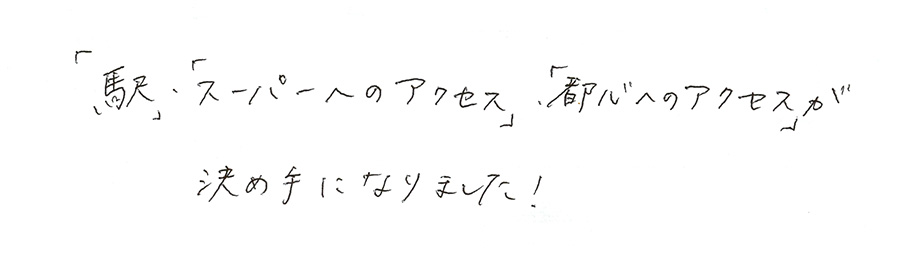 「駅」・「スーパーへのアクセス」・「都心へのアクセス」が
決め手になりました！